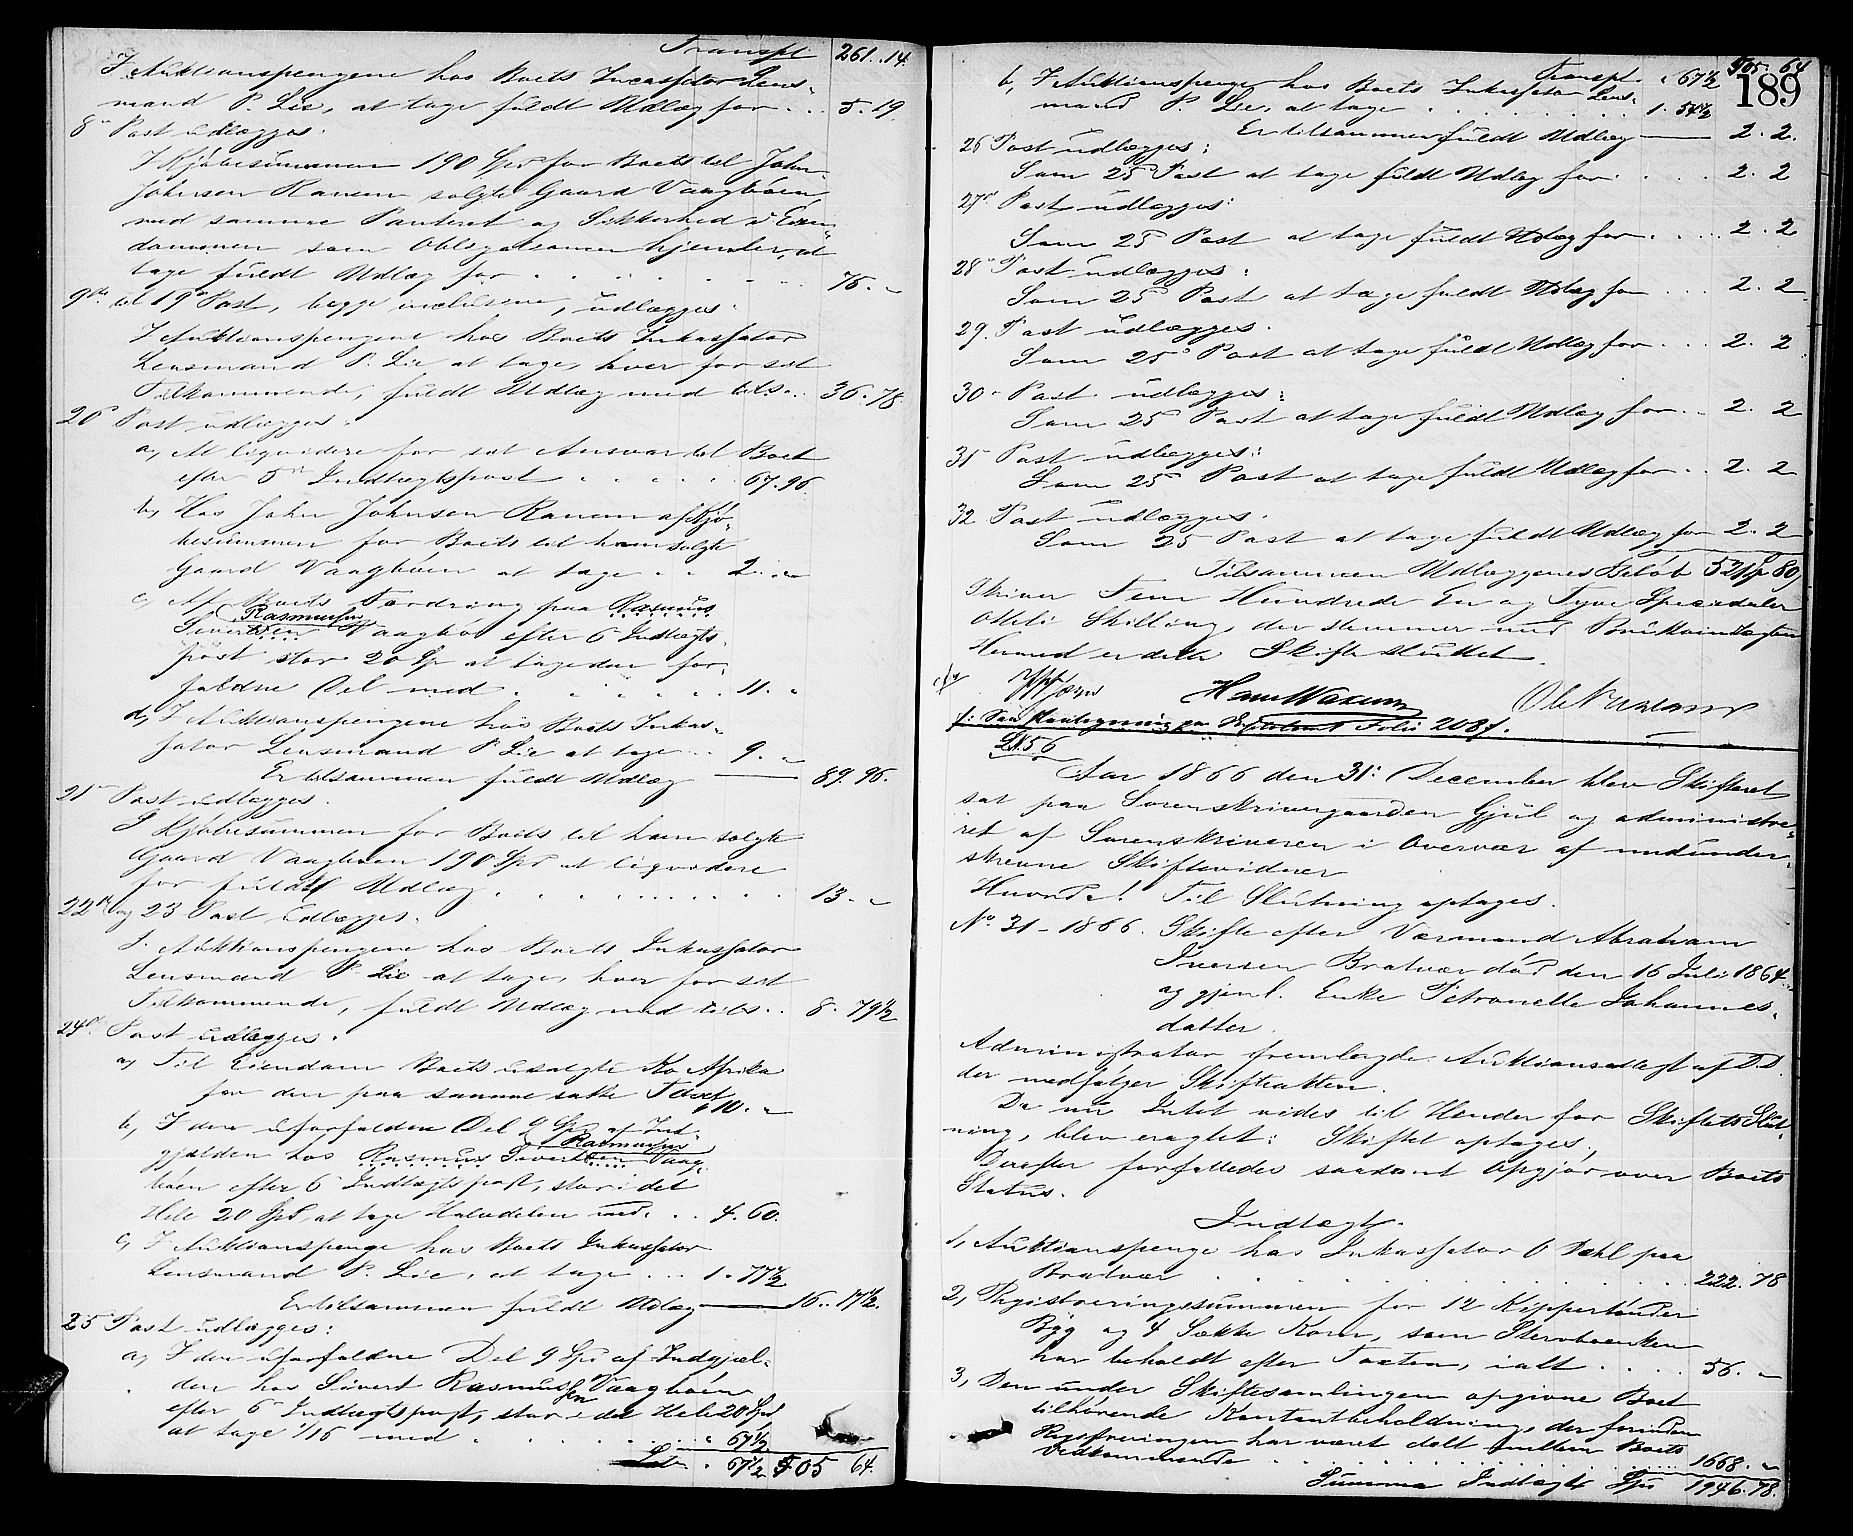 Transpt 261. 14.
I Auktionspengene hos Boets Incassator Lens-
mand P. Lie, at tage fuldt Udlæg for . . 5. 19.
8de Post udlægges.
I Kjøbesummen 190 Spd for Boets til John
Johnsen Ranem solgte Gaard Vaagbøen
med samme Panteret og Sikkerhed i Eien-
dommen som Obligationen hjemler, at
tage fuldt Udlæg for . . . . . 76. "
9de til 19de Post, begge inclusive, udlægges.
I Auktionspengene hos Boets Inkassator
Lensmand P. Lie at tage, hver for sit
Tilkommende, fuldt Udlæg med tils. . 36. 78.
20 Post udlægges.
a, At liqvidere for sit Ansvar til Boet
efter 5te Indtægtspost . . . . . 67. 96.
b, Hos John Johnsen Ranem af Kjø-
besummen for Boets til ham solgte
Gaard Vaagbøen at tage . . 2. "
c, Af Boets Fordring paa Rasmus
(Rasmussen
Sivertsen Vaagbø efter 6 Indtægts-
post stor 20 Sp at tage den for-
faldne Del med . . . . . . 11. "
d, I Auktionspengene hos Boets Inkas-
sator Lensmand P. Lie at tage . . 9. "
Er tilsammen fuldt Udlæg 89. 96.
21de Post udlægges.
I Kjøbesummen for Boets til ham solgte
Gaard Vaagbøen 190 Spd at liqvidere
for fuldt Udlæg . . . . . . . . 13. "
22de og 23 Post udlægges.
I Auktionspengene hos Boets Inkassator
Lensmand P. Lie at tage, hver for sit
Tilkommende, fuldt Udlæg med tils. . 8. 79½
24de Post udlægges.
a, Til Eiendom Boets usolgte Ko Afrika
for den paa samme satte Taxt 10. "
b, I den uforfaldne Del 9 Sp af Ind-
(Rasmussen
gjælden hos Rasmus Sivertsen Vaag-
bøen efter 6 Indtægtspost, stor i det
Hele 20 Spd, at tage Halvdelen med . . 4. 60.
c, I Auktionspenge hos Boets Inkassator
Lensmand P. Lie, at tage . . . 1. 77½
Er tilsammen fuldt Udlæg 16. 17½.
25 Post udlægges:
a, I den uforfaldne Del 9 Spd af Indgjæl-
den hos Sivert Rasmussen Vaagbøen
efter 6 Indtægtspost, stor i det Hele 20 Spd
at tage 1/16 med . . . . . . " 67½
Lat. " 67½ 505 64.
189
Transpt. " 67½ 505. 64
b, I Auktionspenge hos Boets Inkassator Lens-
mand P. Lie, at tage . . . . . . 1. 54½
Er tilsammen fuldt Udlæg 2. 2.
26 Post udlægges:
Som 25 Post at tage fuldt Udlæg for . . . . 2. 2
27de Post udlægges:
Som 25 Post at tage fuldt Udlæg for . . . . 2. 2
28de Post udlægges:
Som 25 Post at tage fuldt Udlæg for . . . 2. 2
29. Post udlægges.
Som 25 Post at tage fuldt Udlæg for . . . 2. 2
30 Post udlægges:
Som 25 Post at tage fuldt Udlæg for . . 2. 2
31 Post udlægges:
Som 25 Post at tage fuldt Udlæg for . . 2. 2
32 Post udlægges.
Som 25 Post at tage fuldt Udlæg for 2. 2
Tilsammen Udlæggenes Beløb 521 Sp 80
skriver Fem Hundrede En og Tyve Speciedaler
Otteti Skilling, der stemmer med Brüttoindtægten
Hermed er dette Skifte sluttet.
Hans Waxum
Folio 208f.
2156
Aar 1866 den 31: December blev Skifteret
sat paa Sorenskrivergaarden Gjül og administre-
ret af Sorenskriveren i Overvær af undunder-
skrevne Skiftevidner
Hvorda! Til Slutning optages.
No. 31 - 1866. Skifte efter Værmand Abraham
Iversen Bratvær død den 16 Juli 1864.
og gjenl. Enke Petronelle Johannes-
datter.
Administrator fremlagde Auktionsudtogt af D.D.
der medfølger Skifteakten.
Da nu Intet vides til Hinder for Skiftets Slut-
ning, blev eragtet: Skiftet optages,
Derefter forfattedes saadant Opgjør over Boets
Status.
Indtægt.
1, Auktionspenge hos Inkassator O Dahl paa
Bratvær . . . . . . . . . . 222. 78
2, Registreringssummen for 12 Kippertønder
Byg og 4 Sække Korn, som Stervboenken
har beholdt efter Taxten, ialt . . . . 56. "
3, Den under Skiftesamlingen opgivne Boet
tilhørende Kontantbeholdning, der foruden
Registreringen har været delt mellem Boets
Vedkommende . . . . . . . . . . 1668. "
Summa Indtægt Spd 1946. 78.